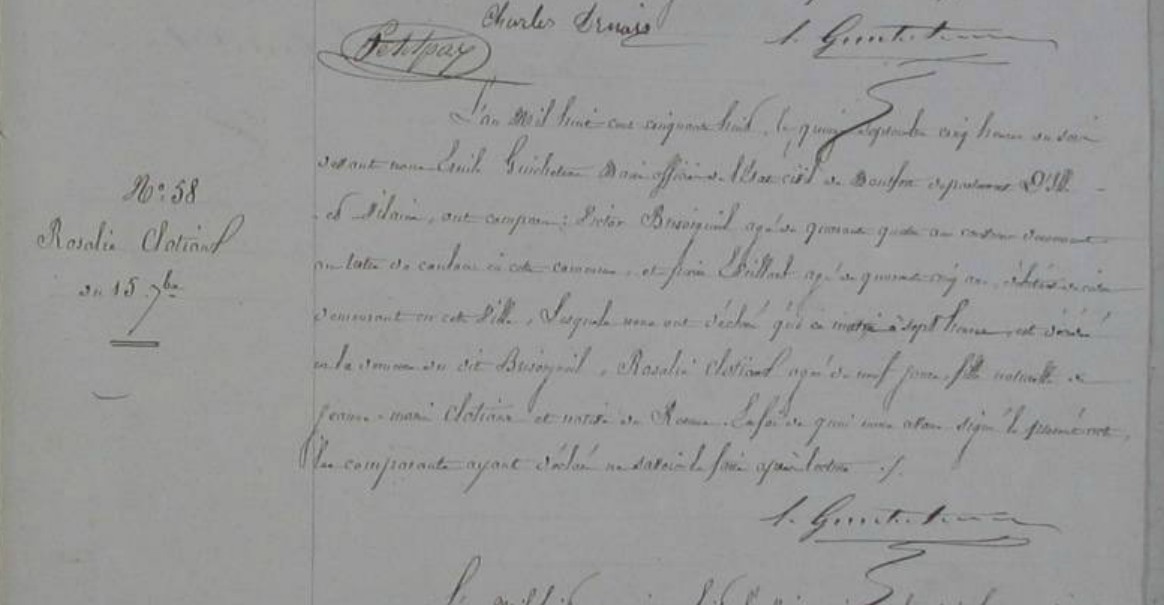 Charles
Petitpas
N°. 58
Rosalie Clotiaux
du 15 7bre
L'an mil huit cent cinquante huit, le quinze septembre cinq heures du soir
devant nous Emile Guicheteau Maire officier de l'Etat civil de Montfort département D'Ille
et Vilaine, ont comparu : Victor Brisorgueil agé de quarante quatre ans demeurant
en cette commune, et agé de quarante cinq ans,
demeurant en cette Ville, Lesquels nous ont déclaré que ce matin à sept heures, est décédé
en la demeure du dit Brisorgueil, Rosalie Clotiaux agée de neuf jours fille naturelle de
Jeanne-marie Clotiaux et native de Rennes. En foi de quoi nous avons signé le présent acte,
les comparants ayant déclaré ne savoir le faire après lecture ./.
E. Guicheteau